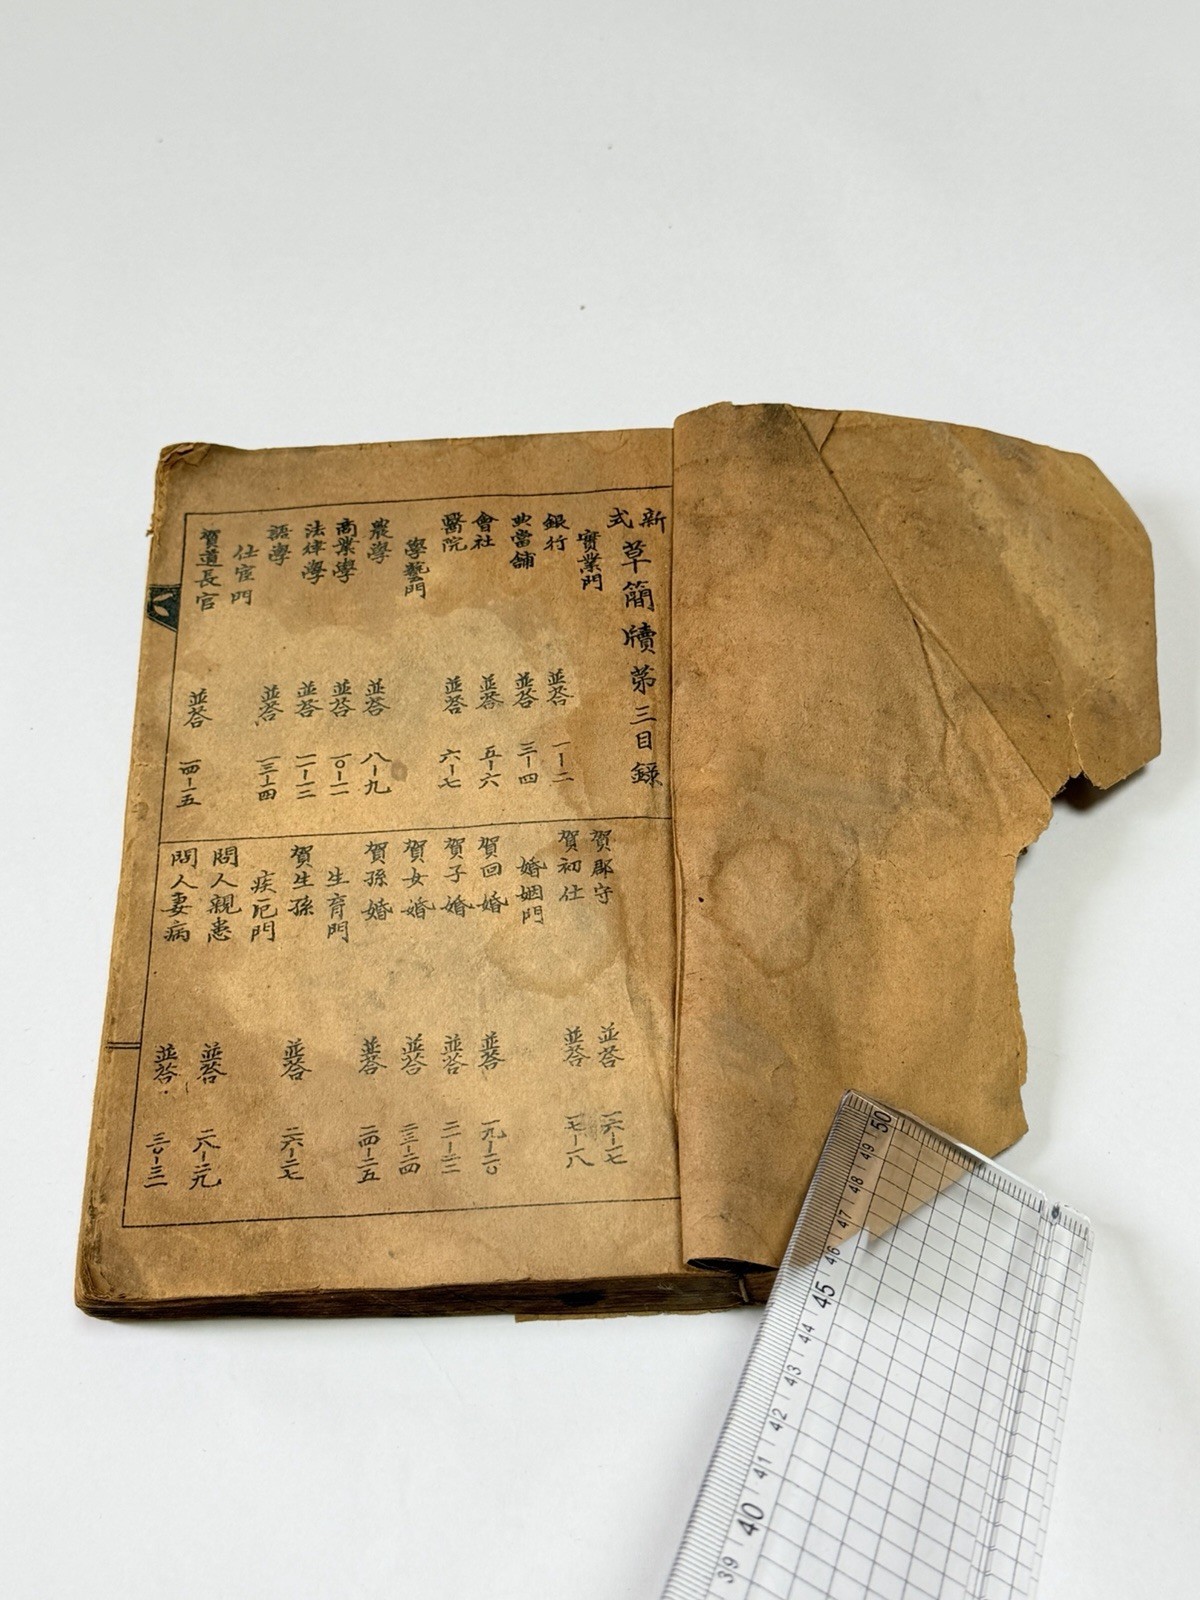 新式草簡牘第三目錄
實業門
銀行 並答 一-二
典當舖 並答 三-四
會社 並答 五-六
醫院 並答 六-七
學藝門
農學 並答 八-九
商業學 並答 一〇-一一
法律學 並答 一一-一三
語學 並答 一三-一四
仕宦門
賀道長官 並答 一四-一五
賀郡守 並答 一六-一七
賀初仕 並答 一七-一八
婚姻門
賀回婚 並答 一九-二〇
賀子婚 並答 二一-二二
賀女婚 並答 二三-二四
賀孫婚 並答 二四-二五
生育門
賀生孫 並答 二六-二七
疾厄門
問人親患 並答 二八-二九
問人妻病 並答 三〇-三一
50
49
48
47
46
45
44
43
42
41
40
39